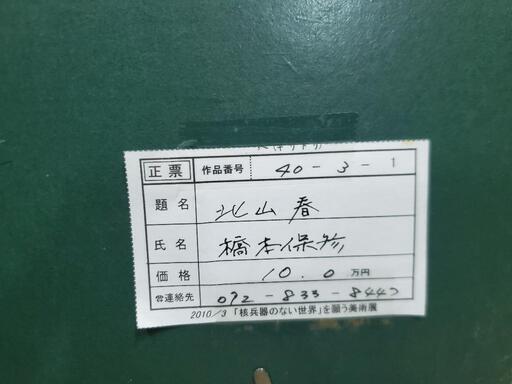 正票 作品番号 40-3-1
題名 北山春
氏名 橋本保
価格 10.0 万円
☎連絡先 092-833-8447
2010/3 「核兵器のない世界」を願う美術展